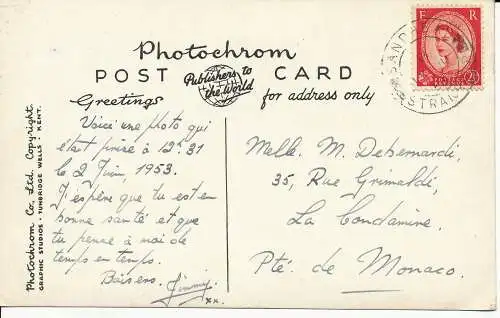 Photochrom
POST CARD
Publishers to
the World
Greetings
for address only
E R
2½
STRAN
Photochrom Co. Ltd. Copyright.
GRAPHIC STUDIOS · TUNBRIDGE WELLS · KENT.
Voici une photo qui
était prise à 2.31
le 2 Juin, 1953.
J'espère que tu est en
bonne santé et que
tu pense à moi de
temps en temps.
Baisers. Jimmy.
xx.
Melle. M. Debernardi,
35, Rue Grimaldi,
La Condamine,
Pté. de Monaco.